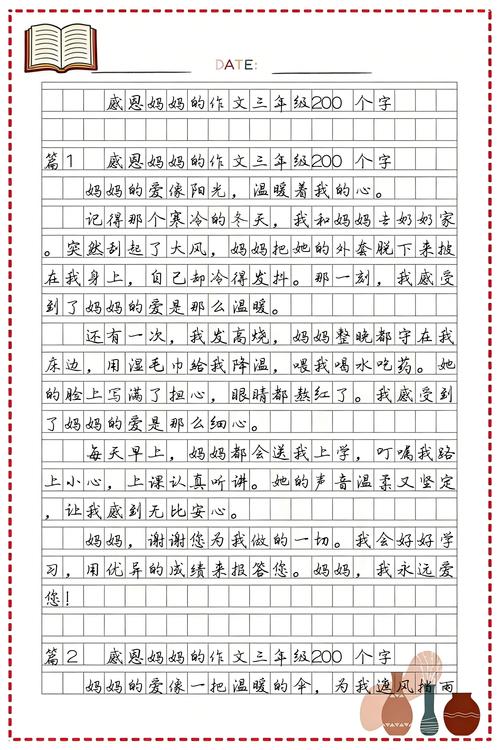 DATE:
感恩妈妈的作文三年级200 个字
篇1 感恩妈妈的作文三年级200 个字
妈妈的爱像阳光，温暖着我的心。
记得那个寒冷的冬天，我和妈妈去奶奶家
。突然刮起了大风，妈妈把她的外套脱下来披
在我身上，自己却冷得发抖。那一刻，我感受
到了妈妈的爱是那么温暖。
还有一次，我发高烧，妈妈整晚都守在我
床边，用湿毛巾给我降温，喂我喝水吃药。她
的脸上写满了担心，眼睛都熬红了。我感受到
了妈妈的爱是那么细心。
每天早上，妈妈都会送我上学，叮嘱我路
上小心，上课认真听讲。她的声音温柔又坚定
，让我感到无比安心。
妈妈，谢谢您为我做的一切。我会好好学
习，用优异的成绩来报答您。妈妈，我永远爱
您！
篇2 感恩妈妈的作文三年级200 个字
妈妈的爱像一把温暖的伞，为我遮风挡雨